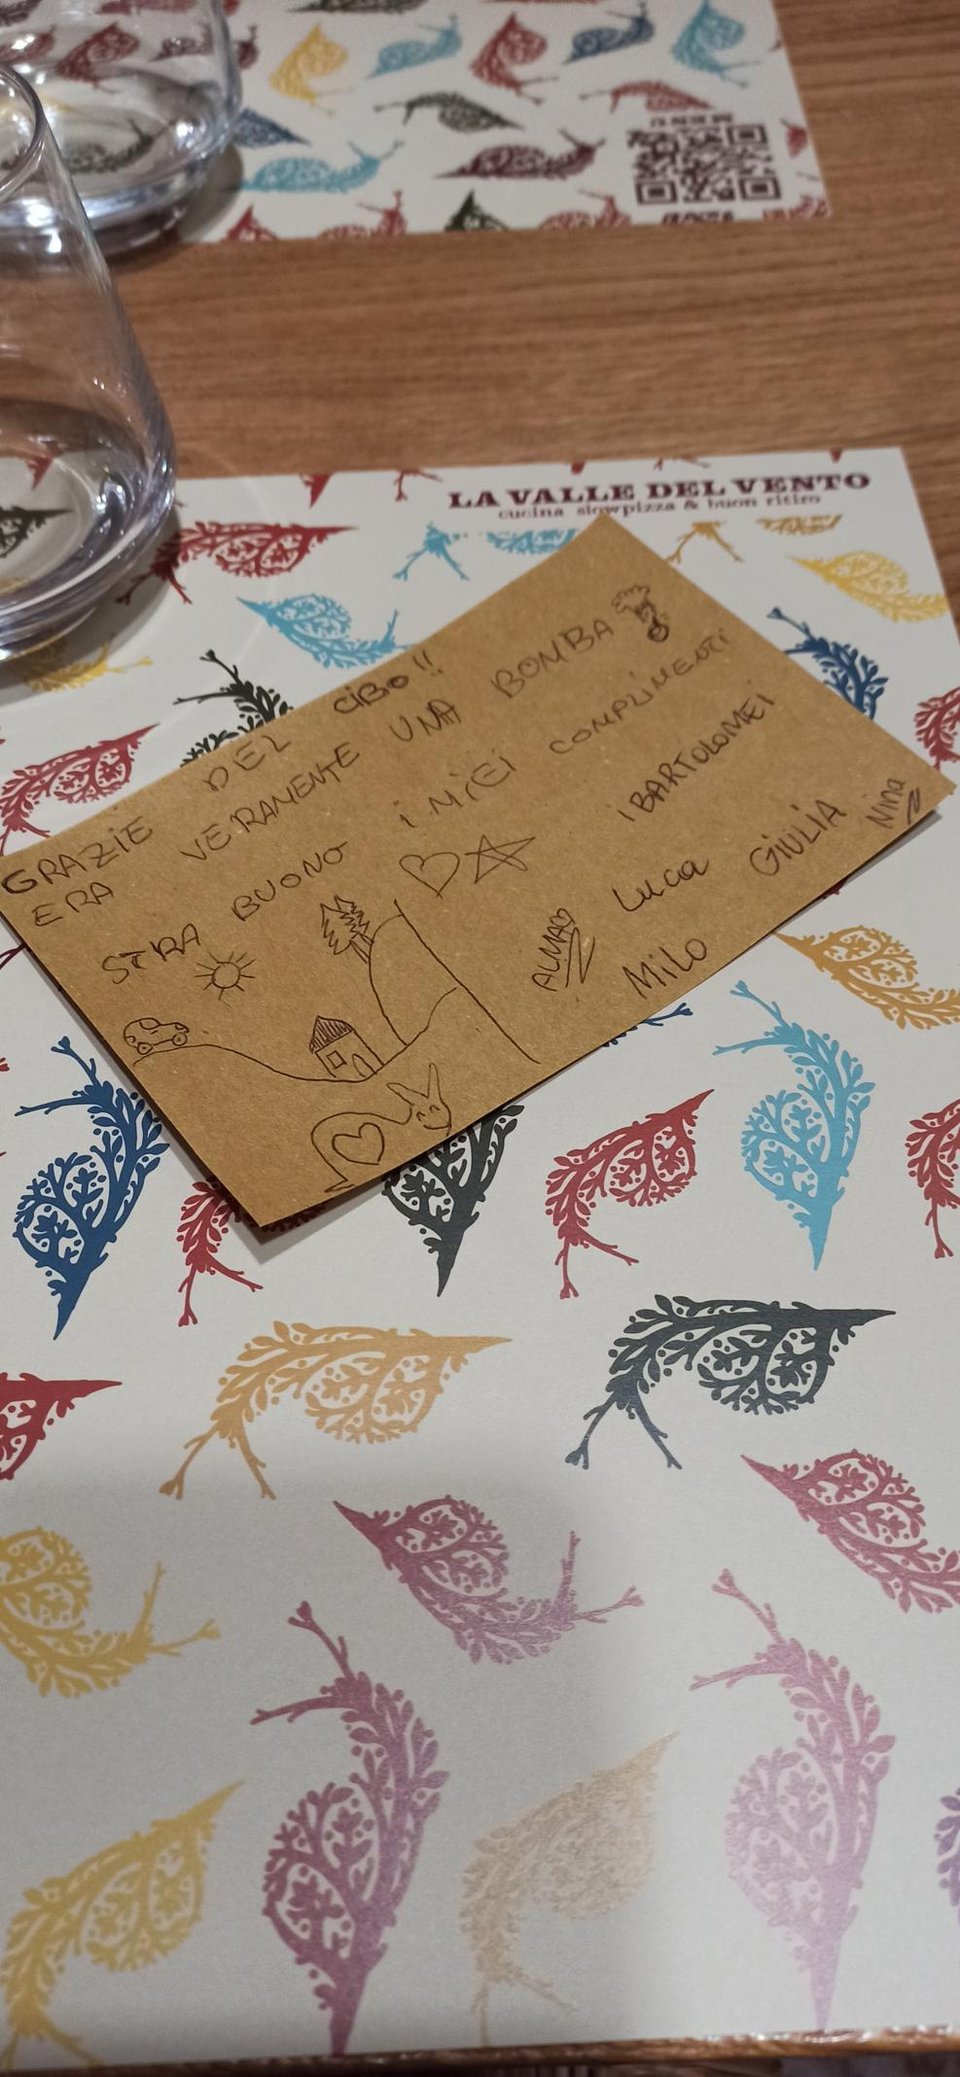 MENU
LA VALLE DEL VENTO
cucina slowpizza & buon ritiro
GRAZIE DEL CIBO!!
ERA VERAMENTE UNA BOMBA
STRA BUONO i MiEi COMPLIMENTI
i BARTOLOMEI
ALMA Luca GIULIA Nina
Milo